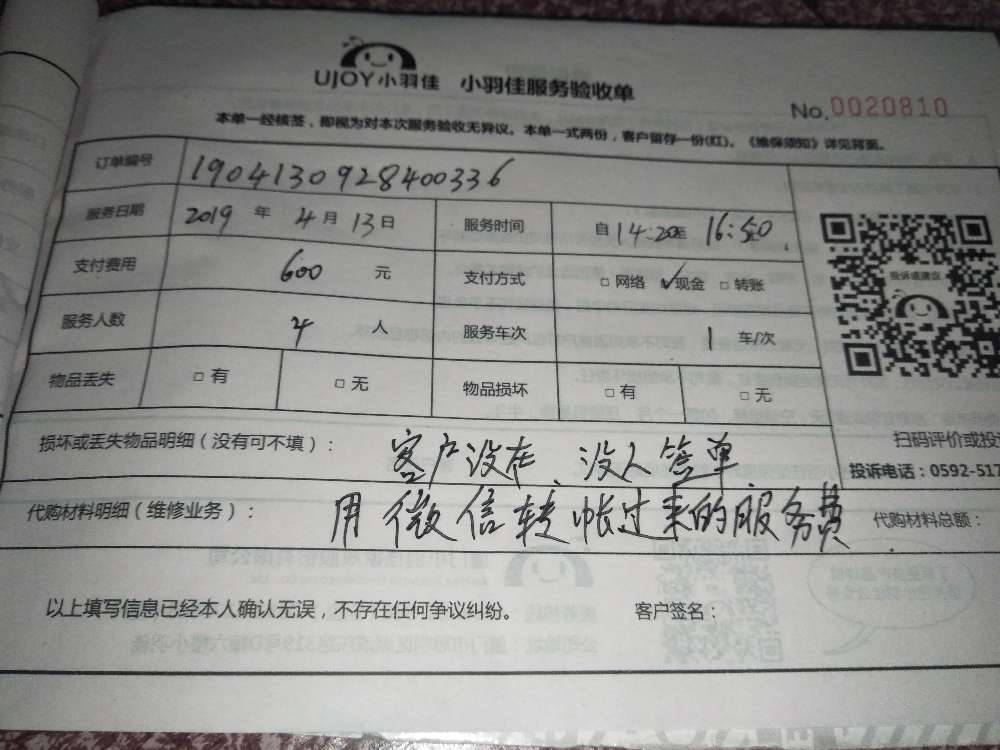 UJOY小羽佳 小羽佳服务验收单
No.0020810
本单一经核签，即视为对本次服务验收无异议。本单一式两份，客户留存一份(红)。《维保须知》详见背面。
订单编号 1904130928400336
服务日期 2019 年 4 月 13 日 服务时间 自 14:20至 16:50
支付费用 600 元 支付方式 □ 网络 ✓现金 □ 转账
投诉或建议
服务人数 4 人 服务车次 1 车/次
物品丢失 □ 有 □ 无 物品损坏 □ 有 □ 无
损坏或丢失物品明细（没有可不填）： 客户没在、没人签单
扫码评价或投
投诉电话：0592-517
代购材料明细（维修业务）： 用微信转帐过来的服务费 代购材料总额：
以上填写信息已经本人确认无误，不存在任何争议纠纷。 客户签名：